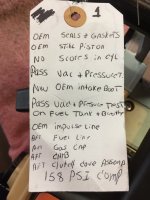 1
OEM SEALS & GASKETS
OEM STIHL PISTON
NO SCORES in cyl
PASS VAC & PRESSURE
New OEM intake Boot
PASS VAC & Pressure Test
On Fuel Tank &
OEM impulse line
AFT Fuel Line
AFT Gas Cap
AFT CARB
AFT Clutch cove Assemb
158 PSI Comp